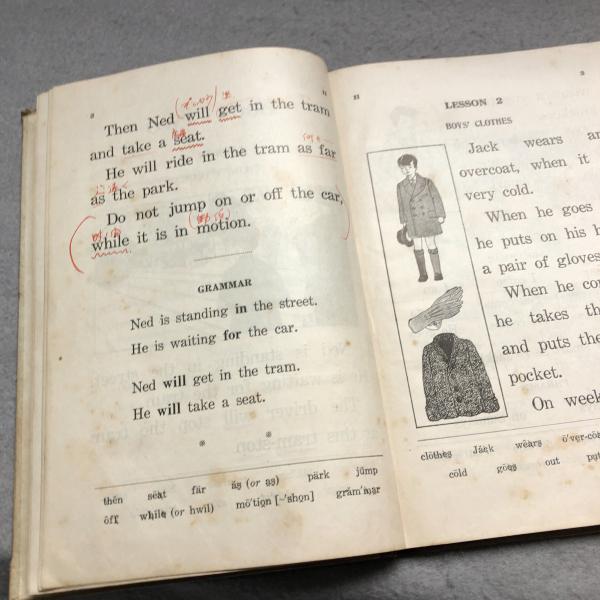 Then Ned will get in the tram
and take a seat.
He will ride in the tram as far
as the park.
Do not jump on or off the car,
while it is in motion.
GRAMMAR
Ned is standing in the street.
He is waiting for the car.
Ned will get in the tram.
He will take a seat.
thĕn sēat fär ăs (or as) pärk jŭmp
ŏff while (or hwīl) mō'tion [-'shon] grăm'mar
LESSON 2
BOYS' CLOTHES
Jack wears an
overcoat, when it
very cold.
When he goes
he puts on his h
a pair of gloves
When he co
he takes th
and puts the
pocket.
On week
clōthes Jăck weârs ō'ver-cōa
cōld gōes out put